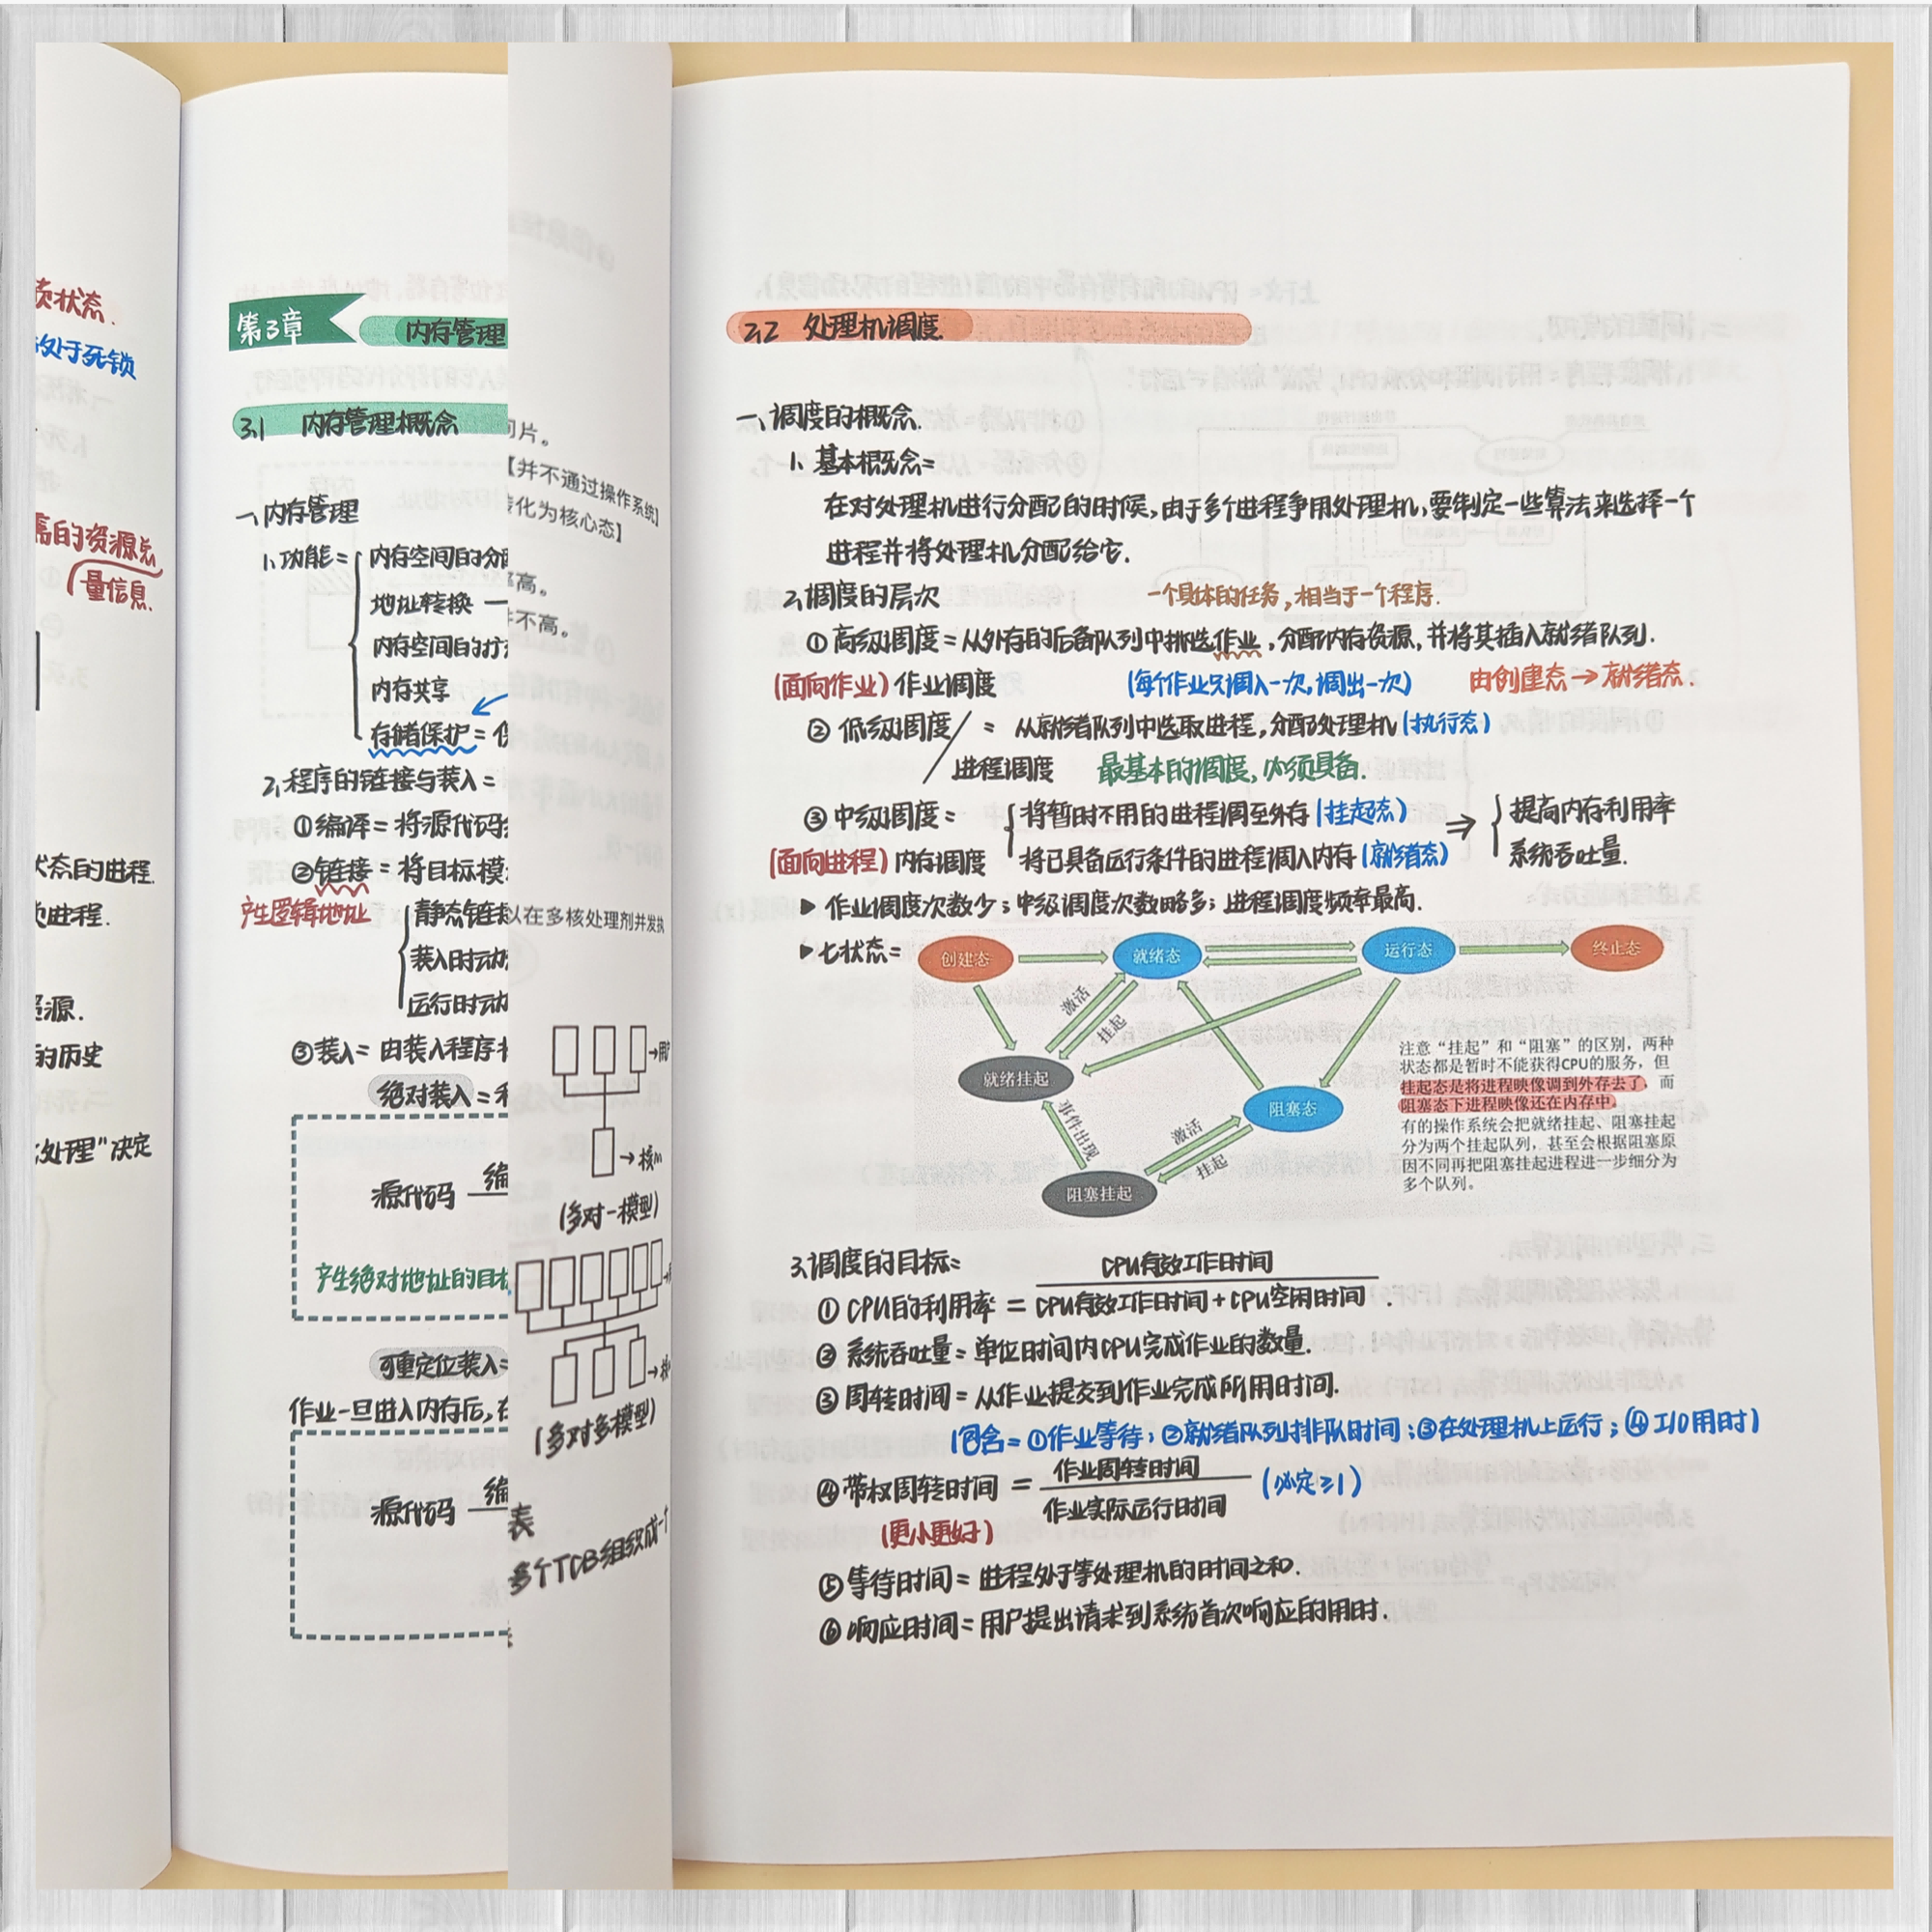 态状态.
处于死锁
需的资源总
量信息.
状态的进程.
进程.
资源.
的历史
处理”决定
第3章 内存管理
3.1 内存管理概念
一、内存管理
1、功能=
内存空间的分配
地址转换 一
内存空间的扩
内存共享
存储保护=
2、程序的链接与装入=
①编译=将源代码
②链接=将目标模
产生逻辑地址
静态链接
装入时动
运行时动
③装入=由装入程序
绝对装入=
源代码 编
产生绝对地址的目标
可重定位装入=
作业一旦进入内存后,在
源代码 编
间片。
【并不通过操作系统】
转化为核心态】
率高。
并不高。
以在多核处理剂并发执
→用户
→核心
(多对一模型)
(多对多模型)
表
多个TCB组织成一个
2.2 处理机调度
一、调度的概念.
1、基本概念=
在对处理机进行分配的时候,由于多个进程争用处理机,要制定一些算法来选择一个
进程并将处理机分配给它.
2、调度的层次
一个具体的任务,相当于一个程序.
①高级调度=从外存的后备队列中挑选作业,分配内存资源,并将其插入就绪队列.
(面向作业)作业调度 (每个作业只调入一次,调出一次) 由创建态→就绪态.
②低级调度/ = 从就绪队列中选取进程,分配处理机(执行态)
进程调度 最基本的调度,必须具备.
③中级调度= 将暂时不用的进程调至外存(挂起态) ⇒ 提高内存利用率
(面向进程)内存调度 将已具备运行条件的进程调入内存(就绪态) 系统吞吐量.
▶作业调度次数少;中级调度次数略多;进程调度频率最高.
▶七状态=
创建态 就绪态 运行态 终止态
激活
挂起
就绪挂起
阻塞态
事件出现
激活
挂起
阻塞挂起
注意“挂起”和“阻塞”的区别,两种
状态都是暂时不能获得CPU的服务,但
挂起态是将进程映像调到外存去了,而
阻塞态下进程映像还在内存中。
有的操作系统会把就绪挂起、阻塞挂起
分为两个挂起队列,甚至会根据阻塞原
因不同再把阻塞挂起进程进一步细分为
多个队列。
3、调度的目标=
CPU有效工作时间
①CPU的利用率=CPU有效工作时间+CPU空闲时间.
②系统吞吐量=单位时间内CPU完成作业的数量.
③周转时间=从作业提交到作业完成所用时间.
(包含=①作业等待;②就绪队列排队时间;③在处理机上运行;④I/O用时)
作业周转时间
④带权周转时间= (必定≥1)
作业实际运行时间
(更小更好)
⑤等待时间=进程处于等处理机的时间之和.
⑥响应时间=用户提出请求到系统首次响应的用时.